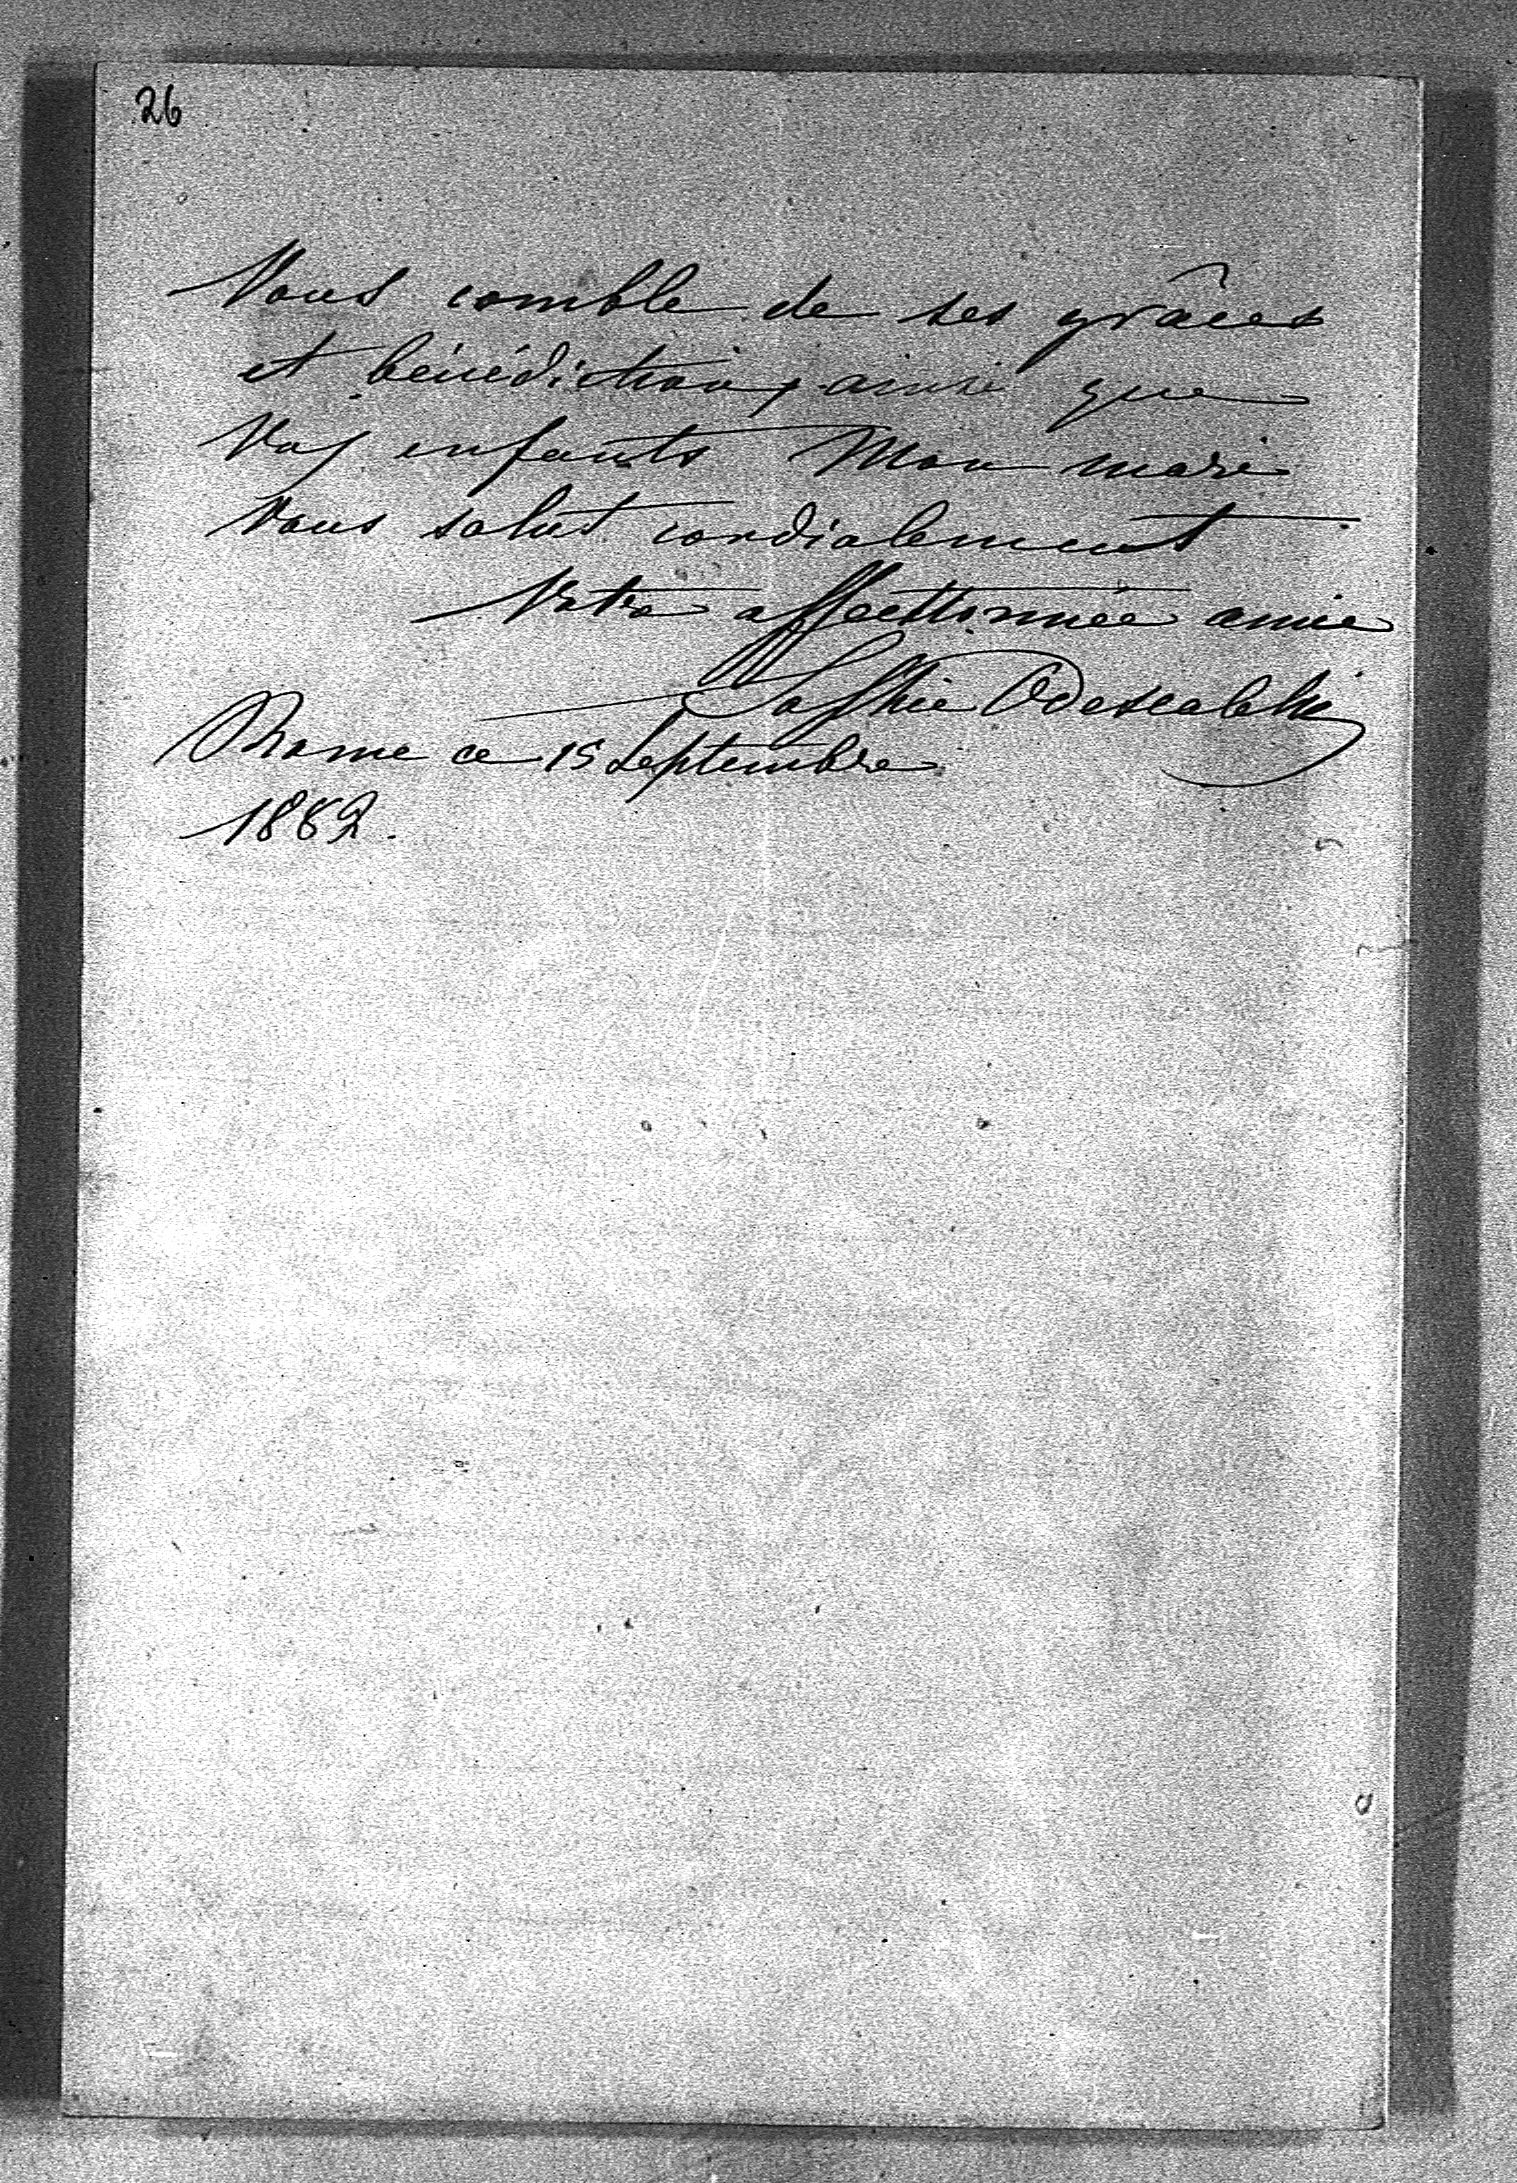 26
Vous comble de ses grâces
et bénédictions ainsi que
Vos enfants Mon mari
Vous salut cordialement
Votre affecttionnée amie
Sophie Odescalchi
Rome ce 15 Septembre
1882.